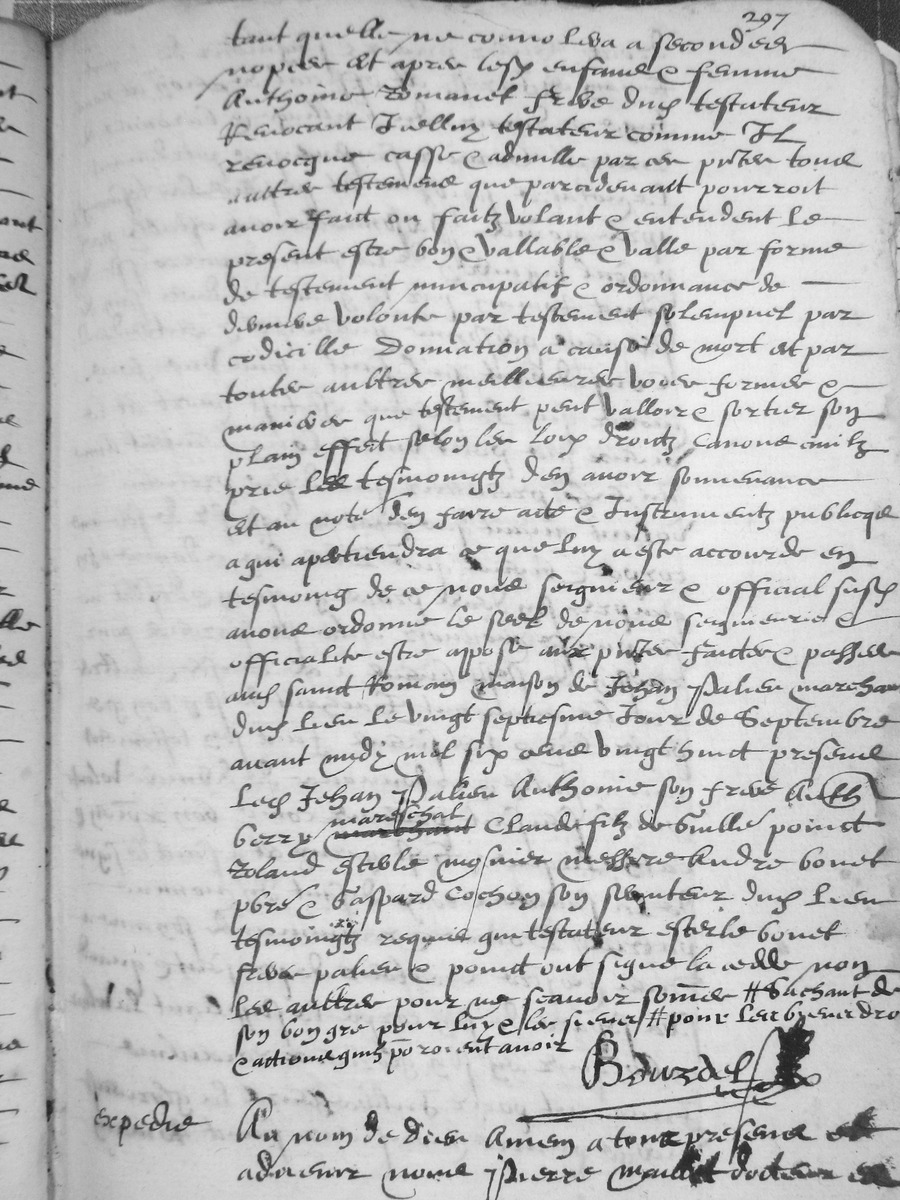 297
tant quelle ne connolera a secondes
nopces et apres lesd enfans & femme
Anthoine Romanet frere dud testateur
Revocant Icelluy testateur comme Il
revocque casse & adnulle par ces pntes tous
aultres testemens que parcidevant pourroit
avoir faict ou faitz volant & entendent le
present estre bon & vallable & valle par forme
de testement nuncupatif & ordonnance de
derniere volonte par testement solempnel par
codicille donnation a cause de mort et par
toutes aultres meillieures voyes formes &
manieres que testement peut valloir & sortir son
plain effect selon les loix droictz canons civilz
prie les tesmoingtz den avoir souvenance
et au note den faire acte & Instrumentz publicqs
a qui apertiendra ce que luy a este accourde en
tesmoing de ce nous seignieur & official susd
avons ordonne le seel de nous seignieurie &
officialite estre apose aux pntes faictes & passees
aud sainct Romain maison de Jehan palien marchan
dud lieu le vingt septiesme Jour de Septembre
avant midy mil six cens vingt huict presens
led Jehan palien Anthoine son frere Anth
berry mareschat Claude filz de Guille poinct
Roland esterle mosnier messire Andre bouet
pbre & Gaspard Cochon son serviteur dud lieu
tesmoingtz requis qui testateur esterle bouet
freres palien & poinct ont signe la cedde non
les aultres pour ne scavoir somes # Sachant de
son bon gre pour luy & les siens # pour leurs biens dro
& actions quilz poroient avoir
Bourdel
expedie
Au nom de dieu Amen a tous presens et
advenir nous pierre maillet docteur es